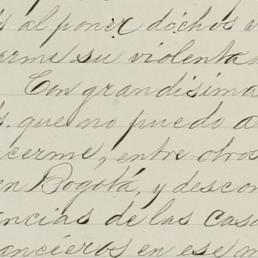 s al poner dichos v
arme su violenta
Con grandísima
s. que no puedo a
cerme, entre otros
en Bogotá, y descon
encias de las casa
ancieros en ese m